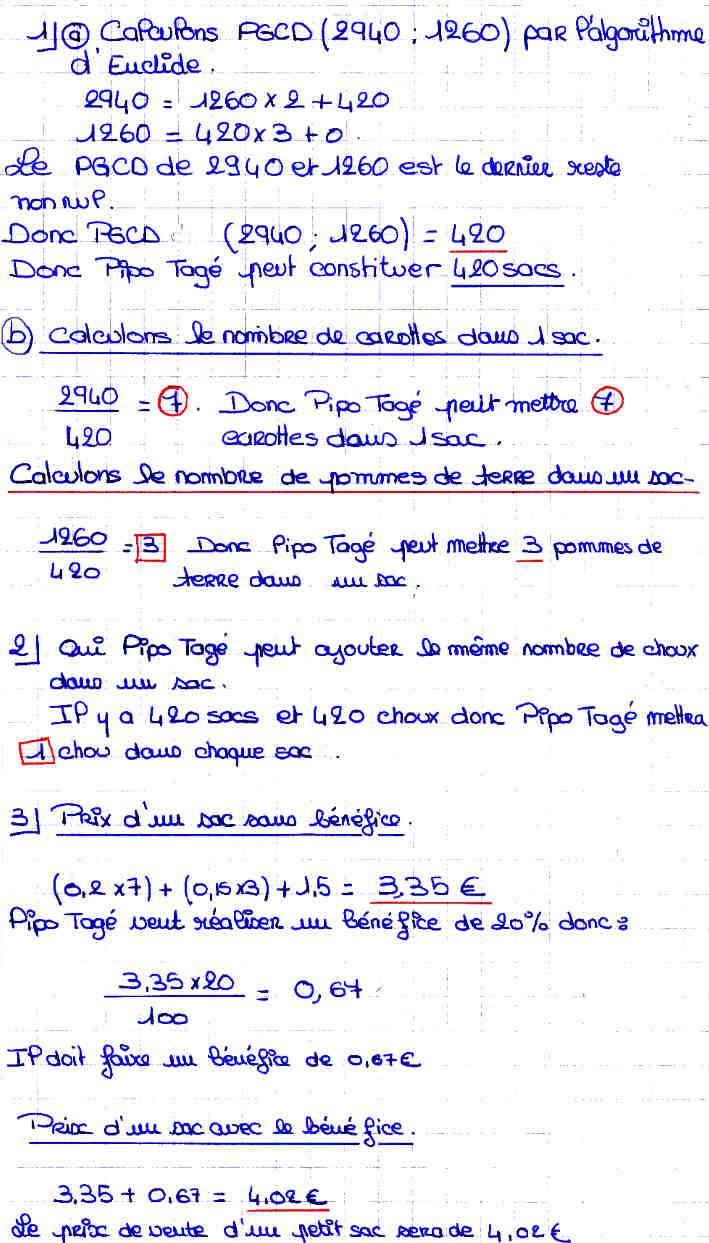 1) a) Calculons PGCD (2940 ; 1260) par l'algorithme
d'Euclide.
2940 = 1260 x 2 + 420
1260 = 420 x 3 + 0.
Le PGCD de 2940 et 1260 est le dernier reste
non nul.
Donc PGCD (2940 ; 1260) = 420
Donc Pipo Tagé peut constituer 420 sacs.
b) Calculons le nombre de carottes dans 1 sac.
2940
/ 420 = 7. Donc Pipo Tagé peut mettre 7
carottes dans 1 sac.
Calculons le nombre de pommes de terre dans un sac-
1260
/ 420 = 3 Donc Pipo Tagé peut mettre 3 pommes de
terre dans un sac.
2) Oui Pipo Tagé peut ajouter le même nombre de choux
dans un sac.
Il y a 420 sacs et 420 choux donc Pipo Tagé mettra
1 chou dans chaque sac.
3) Prix d'un sac sans bénéfice.
(0,2 x 7) + (0,15 x 3) + 1,5 = 3,35 €
Pipo Tagé veut réaliser un bénéfice de 20% donc :
3,35 x 20
/ 100 = 0,67
Il doit faire un bénéfice de 0,67 €
Prix d'un sac avec le bénéfice.
3,35 + 0,67 = 4,02 €
Le prix de vente d'un petit sac sera de 4,02 €